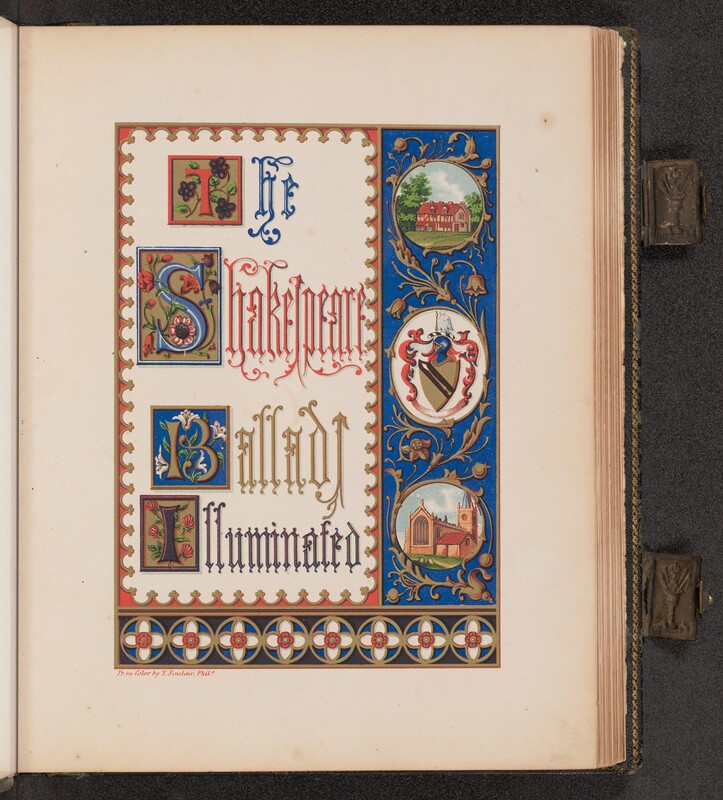 The
Shakespeare
Ballads
Illuminated
Pr. in Color by T. Sinclair, Phila.